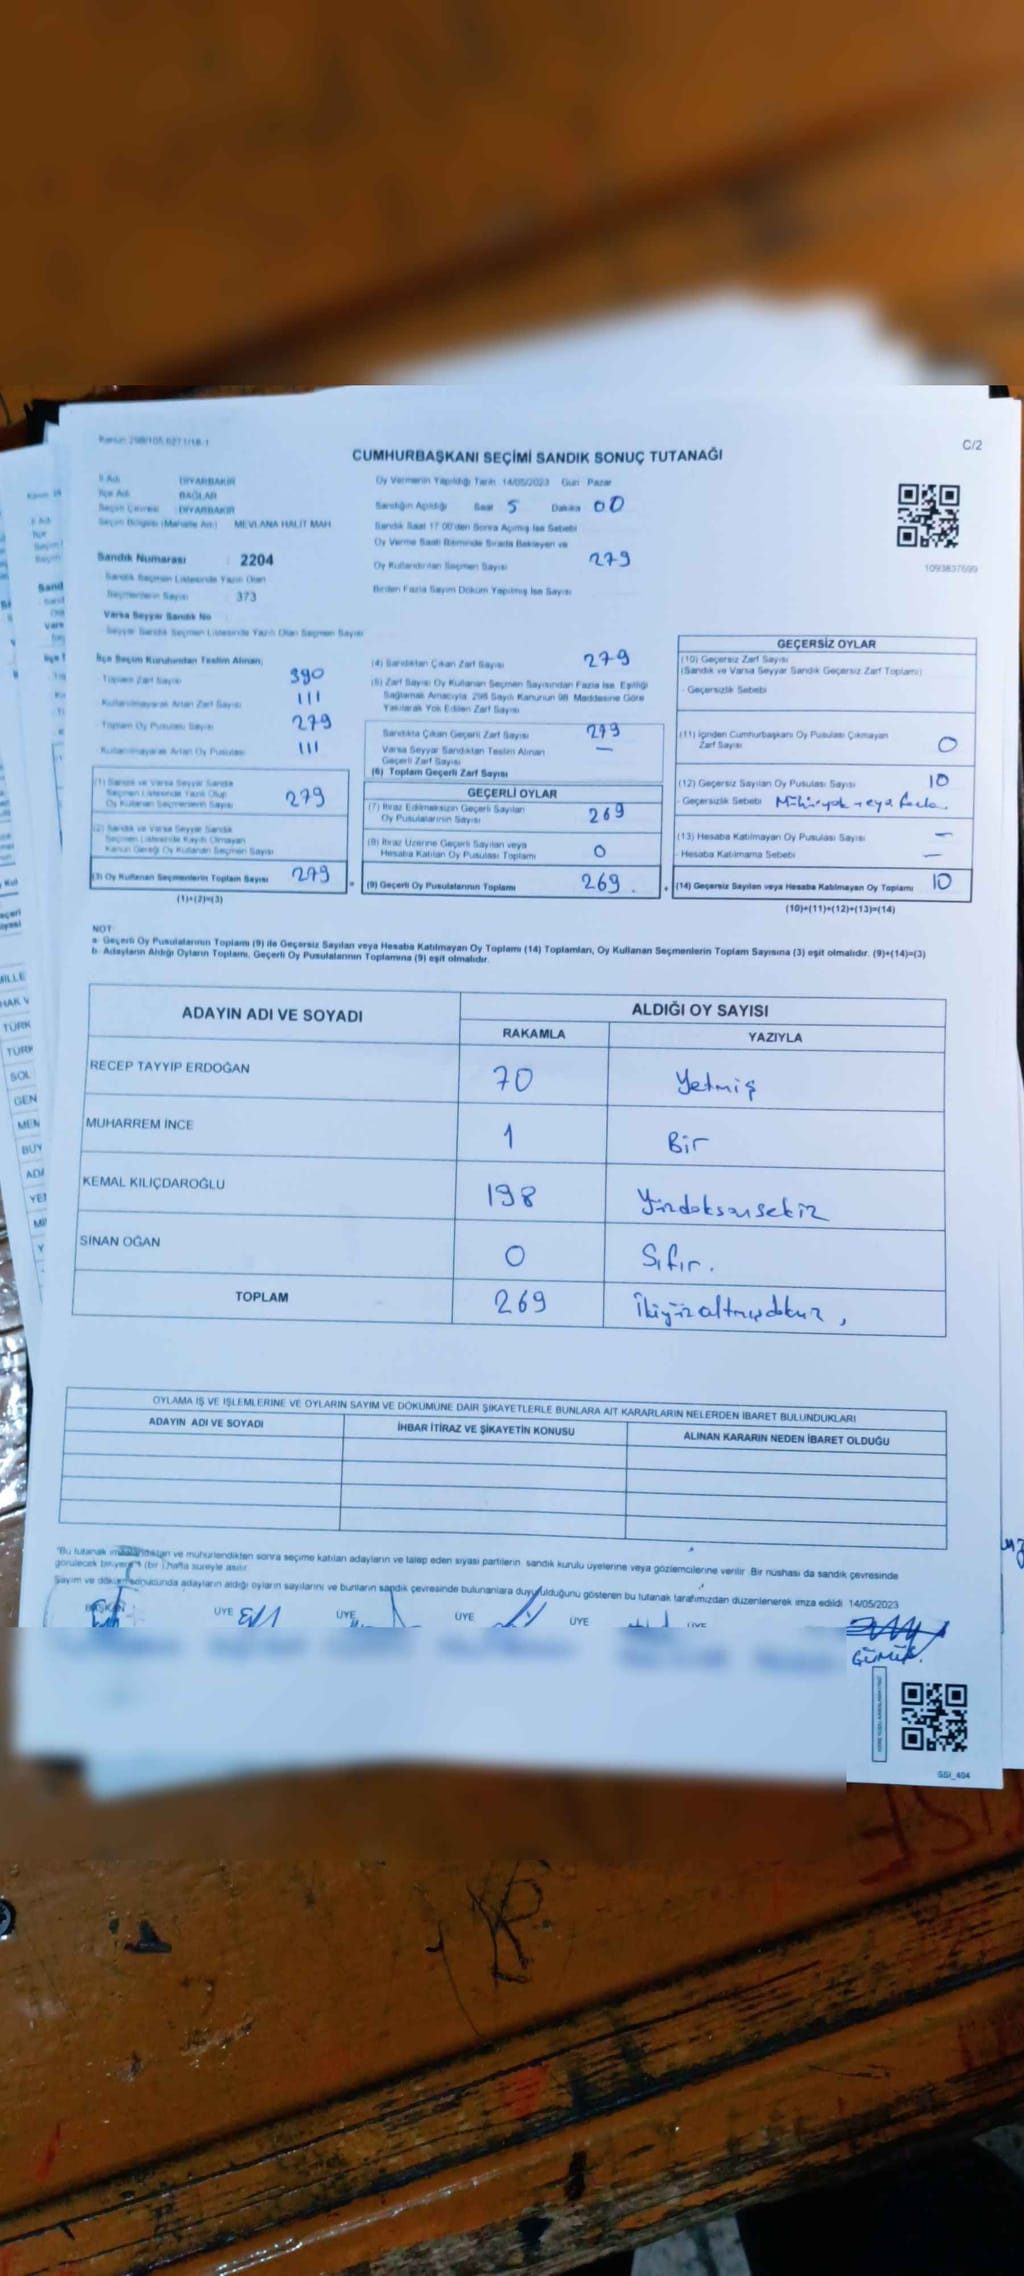 Kanun 298/105,6271/18-1
C/2
CUMHURBAŞKANI SEÇİMİ SANDIK SONUÇ TUTANAĞI
İl Adı DİYARBAKIR
İlçe Adı BAĞLAR
Seçim Çevresi DİYARBAKIR
Seçim Bölgesi (Mahalle Adı) MEVLANA HALİT MAH.
Sandık Numarası : 2204
Sandık Seçmen Listesinde Yazılı Olan
Seçmenlerin Sayısı : 373
Varsa Seyyar Sandık No
Seyyar Sandık Seçmen Listesinde Yazılı Olan Seçmen Sayısı
Oy Vermenin Yapıldığı Tarih 14/05/2023 Gün Pazar
Sandığın Açıldığı Saat 5 Dakika 00
Sandık Saat 17:00'den Sonra Açılmış İse Sebebi
Oy Verme Saati Bitiminde Sırada Bekleyen ve
Oy Kullandırılan Seçmen Sayısı 279
Birden Fazla Sayım Döküm Yapılmış İse Sayısı
1093837699
İlçe Seçim Kurulundan Teslim Alınan;
Toplam Zarf Sayısı 390
Kullanılmayarak Artan Zarf Sayısı 111
Toplam Oy Pusulası Sayısı 279
Kullanılmayarak Artan Oy Pusulası 111
(1) Sandık ve Varsa Seyyar Sandık
Seçmen Listesinde Yazılı Olup
Oy Kullanan Seçmenlerin Sayısı 279
(2) Sandık ve Varsa Seyyar Sandık
Seçmen Listesinde Kayıtlı Olmayan
Kanun Gereği Oy Kullanan Seçmen Sayısı
(3) Oy Kullanan Seçmenlerin Toplam Sayısı 279
(1)+(2)=(3)
(4) Sandıktan Çıkan Zarf Sayısı 279
(5) Zarf Sayısı Oy Kullanan Seçmen Sayısından Fazla İse, Eşitliği
Sağlamak Amacıyla, 298 Sayılı Kanunun 98. Maddesine Göre
Yakılarak Yok Edilen Zarf Sayısı
Sandıkta Çıkan Geçerli Zarf Sayısı 279
Varsa Seyyar Sandıktan Teslim Alınan
Geçerli Zarf Sayısı —
(6) Toplam Geçerli Zarf Sayısı
GEÇERLİ OYLAR
(7) İtiraz Edilmeksizin Geçerli Sayılan
Oy Pusulalarının Sayısı 269
(8) İtiraz Üzerine Geçerli Sayılan veya
Hesaba Katılan Oy Pusulası Toplamı 0
= (9) Geçerli Oy Pusulalarının Toplamı 269.
GEÇERSİZ OYLAR
(10) Geçersiz Zarf Sayısı
(Sandık ve Varsa Seyyar Sandık Geçersiz Zarf Toplamı)
- Geçersizlik Sebebi
(11) İçinden Cumhurbaşkanı Oy Pusulası Çıkmayan
Zarf Sayısı 0
(12) Geçersiz Sayılan Oy Pusulası Sayısı 10
- Geçersizlik Sebebi Mühür yok veya fazla
(13) Hesaba Katılmayan Oy Pusulası Sayısı —
- Hesaba Katılmama Sebebi —
+ (14) Geçersiz Sayılan veya Hesaba Katılmayan Oy Toplamı 10
(10)+(11)+(12)+(13)=(14)
NOT:
a- Geçerli Oy Pusulalarının Toplamı (9) ile Geçersiz Sayılan veya Hesaba Katılmayan Oy Toplamı (14) Toplamları, Oy Kullanan Seçmenlerin Toplam Sayısına (3) eşit olmalıdır. (9)+(14)=(3)
b- Adayların Aldığı Oyların Toplamı, Geçerli Oy Pusulalarının Toplamına (9) eşit olmalıdır.
ADAYIN ADI VE SOYADI ALDIĞI OY SAYISI
RAKAMLA YAZIYLA
RECEP TAYYİP ERDOĞAN 70 Yetmiş
MUHARREM İNCE 1 Bir
KEMAL KILIÇDAROĞLU 198 Yüzdoksansekiz
SİNAN OĞAN 0 Sıfır.
TOPLAM 269 İkiyüzaltmışdokuz,
OYLAMA İŞ VE İŞLEMLERİNE VE OYLARIN SAYIM VE DÖKÜMÜNE DAİR ŞİKAYETLERLE BUNLARA AİT KARARLARIN NELERDEN İBARET BULUNDUKLARI
ADAYIN ADI VE SOYADI İHBAR İTİRAZ VE ŞİKAYETİN KONUSU ALINAN KARARIN NEDEN İBARET OLDUĞU
"Bu tutanak imzalandıktan ve mühürlendikten sonra seçime katılan adayların ve talep eden siyasi partilerin sandık kurulu üyelerine veya gözlemcilerine verilir. Bir nüshası da sandık çevresinde
görülecek bir yere 1 (bir ) hafta süreyle asılır.
Sayım ve döküm sonucunda adayların aldığı oyların sayılarını ve bunların sandık çevresinde bulunanlara duyurulduğunu gösteren bu tutanak tarafımızdan düzenlenerek imza edildi. 14/05/2023
BAŞKAN ÜYE ÜYE ÜYE ÜYE ÜYE
SSI_404